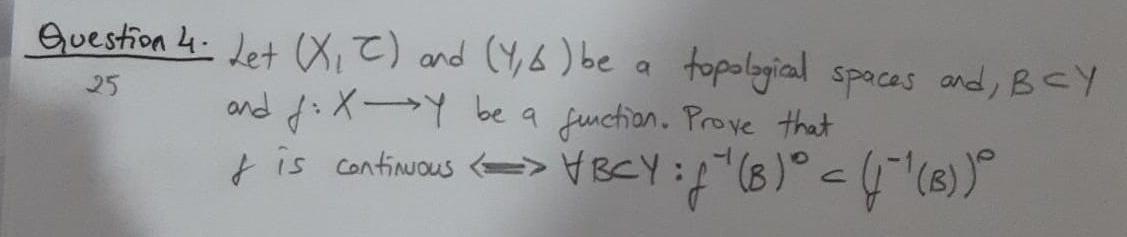 Question 4. Let (X, τ) and (Y, δ) be a topological spaces and, B ⊂ Y
25 and f: X → Y be a function. Prove that
f is continuous ⟺ ∀B⊂Y : f⁻¹(B)° ⊂ (f⁻¹(B))°